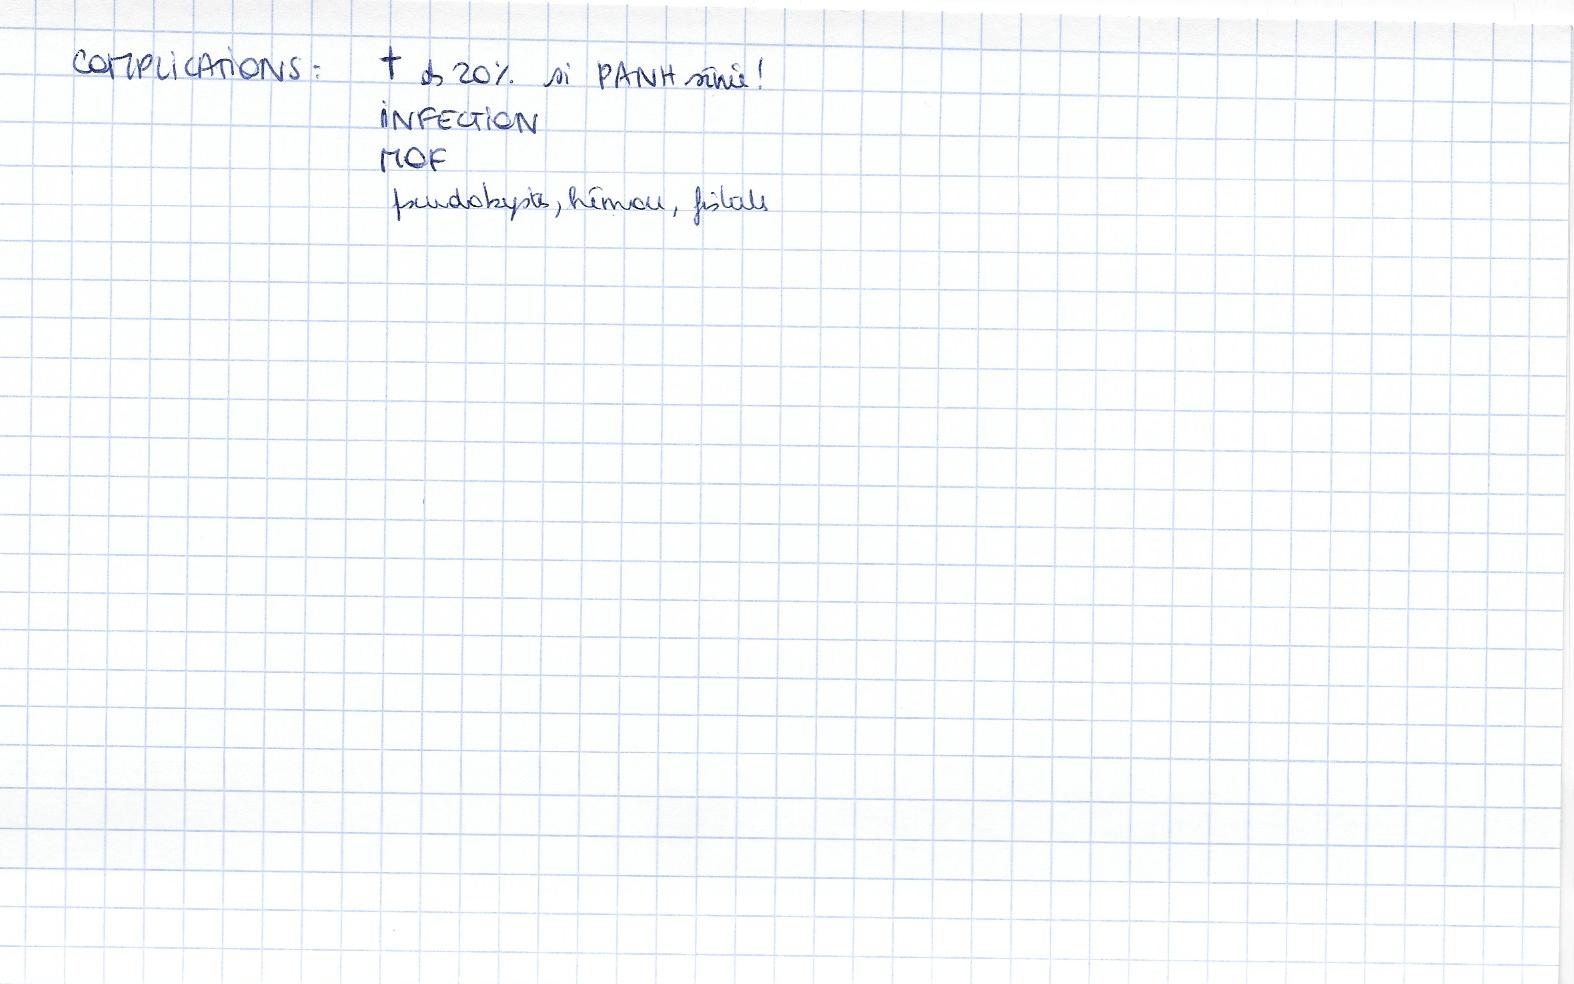 COMPLICATIONS: † ds 20% si PANH sévère!
INFECTION
MOF
pseudokystes, hémorr, fistules